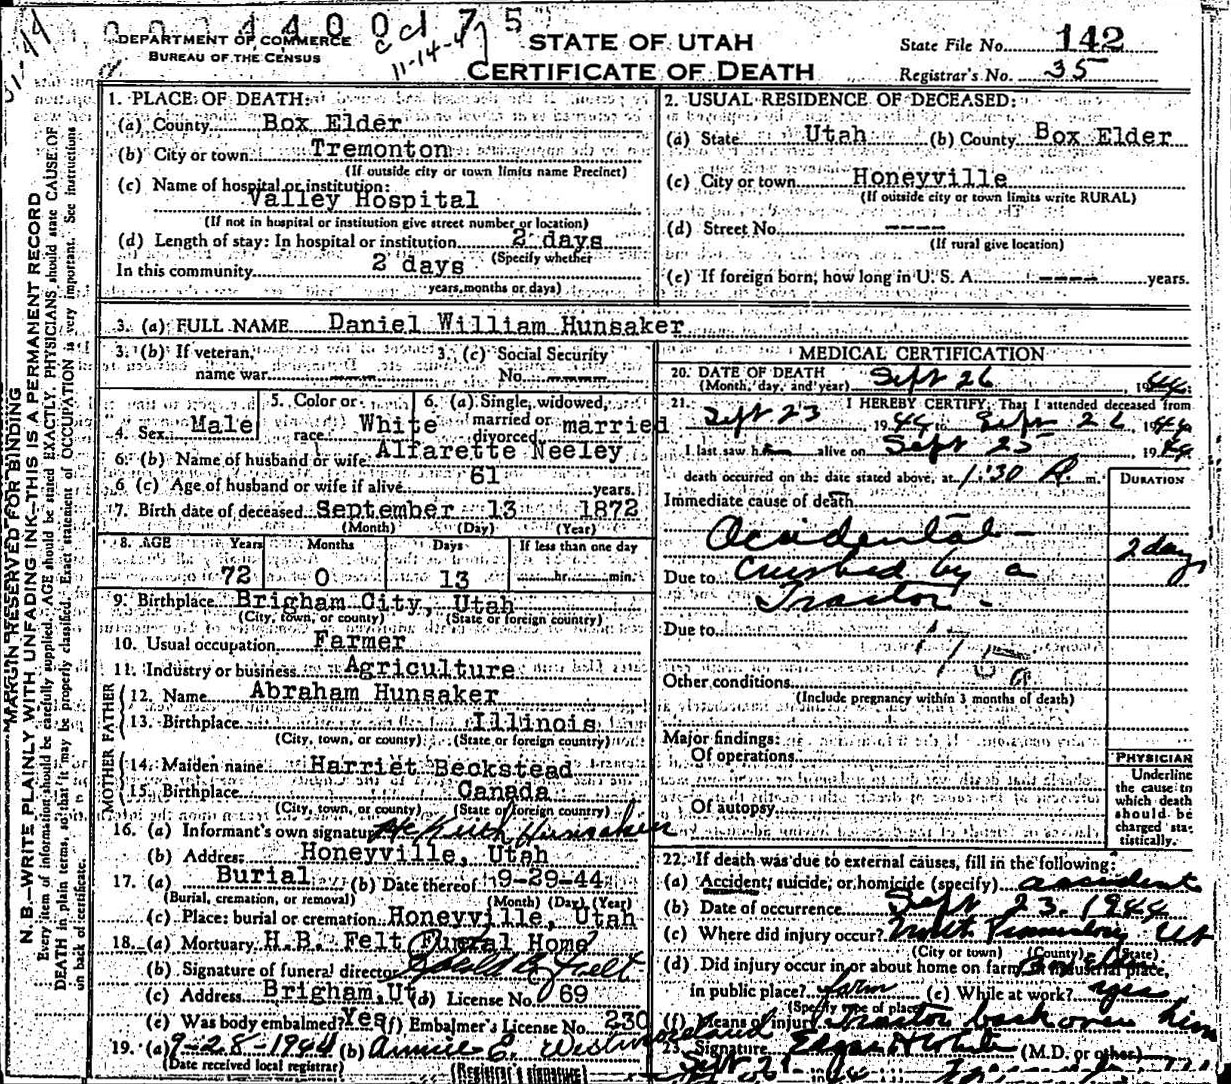 DEPARTMENT OF COMMERCE
BUREAU OF THE CENSUS
11-14-47
STATE OF UTAH
CERTIFICATE OF DEATH
State File No. 142
Registrar's No. 35
MARGIN RESERVED FOR BINDING
N. B.—WRITE PLAINLY WITH UNFADING INK—THIS IS A PERMANENT RECORD
Every item of information should be carefully supplied. AGE should be stated EXACTLY. PHYSICIANS should state CAUSE OF
DEATH in plain terms, so that it may be properly classified. Exact statement of OCCUPATION is very important. See instructions
on back of certificate.
1. PLACE OF DEATH:
(a) County Box Elder
(b) City or town Tremonton
(If outside city or town limits name Precinct)
(c) Name of hospital or institution:
Valley Hospital
(If not in hospital or institution give street number or location)
(d) Length of stay: In hospital or institution 2 days
(Specify whether
In this community 2 days
years, months or days)
2. USUAL RESIDENCE OF DECEASED:
(a) State Utah (b) County Box Elder
(c) City or town Honeyville
(If outside city or town limits write RURAL)
(d) Street No. ----
(If rural give location)
(e) If foreign born, how long in U. S. A. ---- years.
3. (a) FULL NAME Daniel William Hunsaker
3. (b) If veteran, name war ----
3. (c) Social Security No. ----
4. Sex Male
5. Color or race White
6. (a) Single, widowed, married or divorced married
6. (b) Name of husband or wife Alfarette Neeley
6 (c) Age of husband or wife if alive 61 years.
7. Birth date of deceased September 13 1872
(Month) (Day) (Year)
8. AGE Years Months Days If less than one day
72 0 13 hr. min.
9. Birthplace Brigham City, Utah
(City, town, or county) (State or foreign country)
10. Usual occupation Farmer
11. Industry or business Agriculture
FATHER
12. Name Abraham Hunsaker
13. Birthplace Illinois
(City, town, or county) (State or foreign country)
MOTHER
14. Maiden name Harriet Beckstead
15. Birthplace Canada
(City, town, or county) (State or foreign country)
16. (a) Informant's own signature Hunsaker
(b) Address Honeyville, Utah
17. (a) Burial (b) Date thereof 9-29-44
(Burial, cremation, or removal) (Month) (Day) (Year)
(c) Place: burial or cremation Honeyville, Utah
18. (a) Mortuary H.B. Felt Funeral Home
(b) Signature of funeral director Felt
(c) Address Brigham, Ut (d) License No. 69
(e) Was body embalmed? Yes (f) Embalmer's License No. 230
19. (a) 9-28-1944 (b) Annie E. Westmoreland
(Date received local registrar) (Registrar's signature)
MEDICAL CERTIFICATION
20. DATE OF DEATH
(Month, day, and year) Sept 26, 1944
21. I HEREBY CERTIFY, That I attended deceased from
Sept 23 1944 to Sept 26, 1944
I last saw him alive on Sept 25, 1944
death occurred on the date stated above, at 1:30 m.
DURATION
Immediate cause of death
Accidental —
2 days
Due to crushed by a
Tractor —
Due to
Other conditions
(Include pregnancy within 3 months of death)
Major findings:
Of operations
Of autopsy
PHYSICIAN
Underline
the cause to
which death
should be
charged sta-
tistically.
22. If death was due to external causes, fill in the following:
(a) Accident, suicide, or homicide (specify) accident
(b) Date of occurrence Sept 23. 1944
(c) Where did injury occur? Ut
(City or town) (County) (State)
(d) Did injury occur in or about home on farm, in industrial place,
in public place? farm (e) While at work? yes
(Specify type of place)
(f) Means of injury Tractor back over him
23. Signature Edgar H White (M.D. or other)